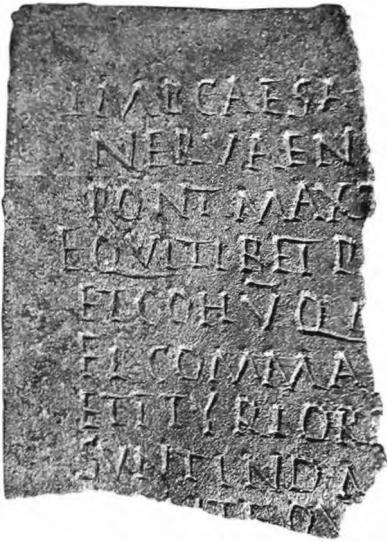 IMP CAESA
NERVAE N
PONT MAX
EQVITIB ET
ET COH V QVI
FL COMMA
ET I TYRIOR
SVNT IN DA